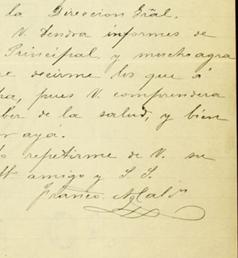 la Direccion Gral.
V. tendra informes de
Principal y mucho agra
decirme los que á
pues V. comprendera
ber de la salud, y bien
repetirme de V. su
amigo y S. S.
Franco.